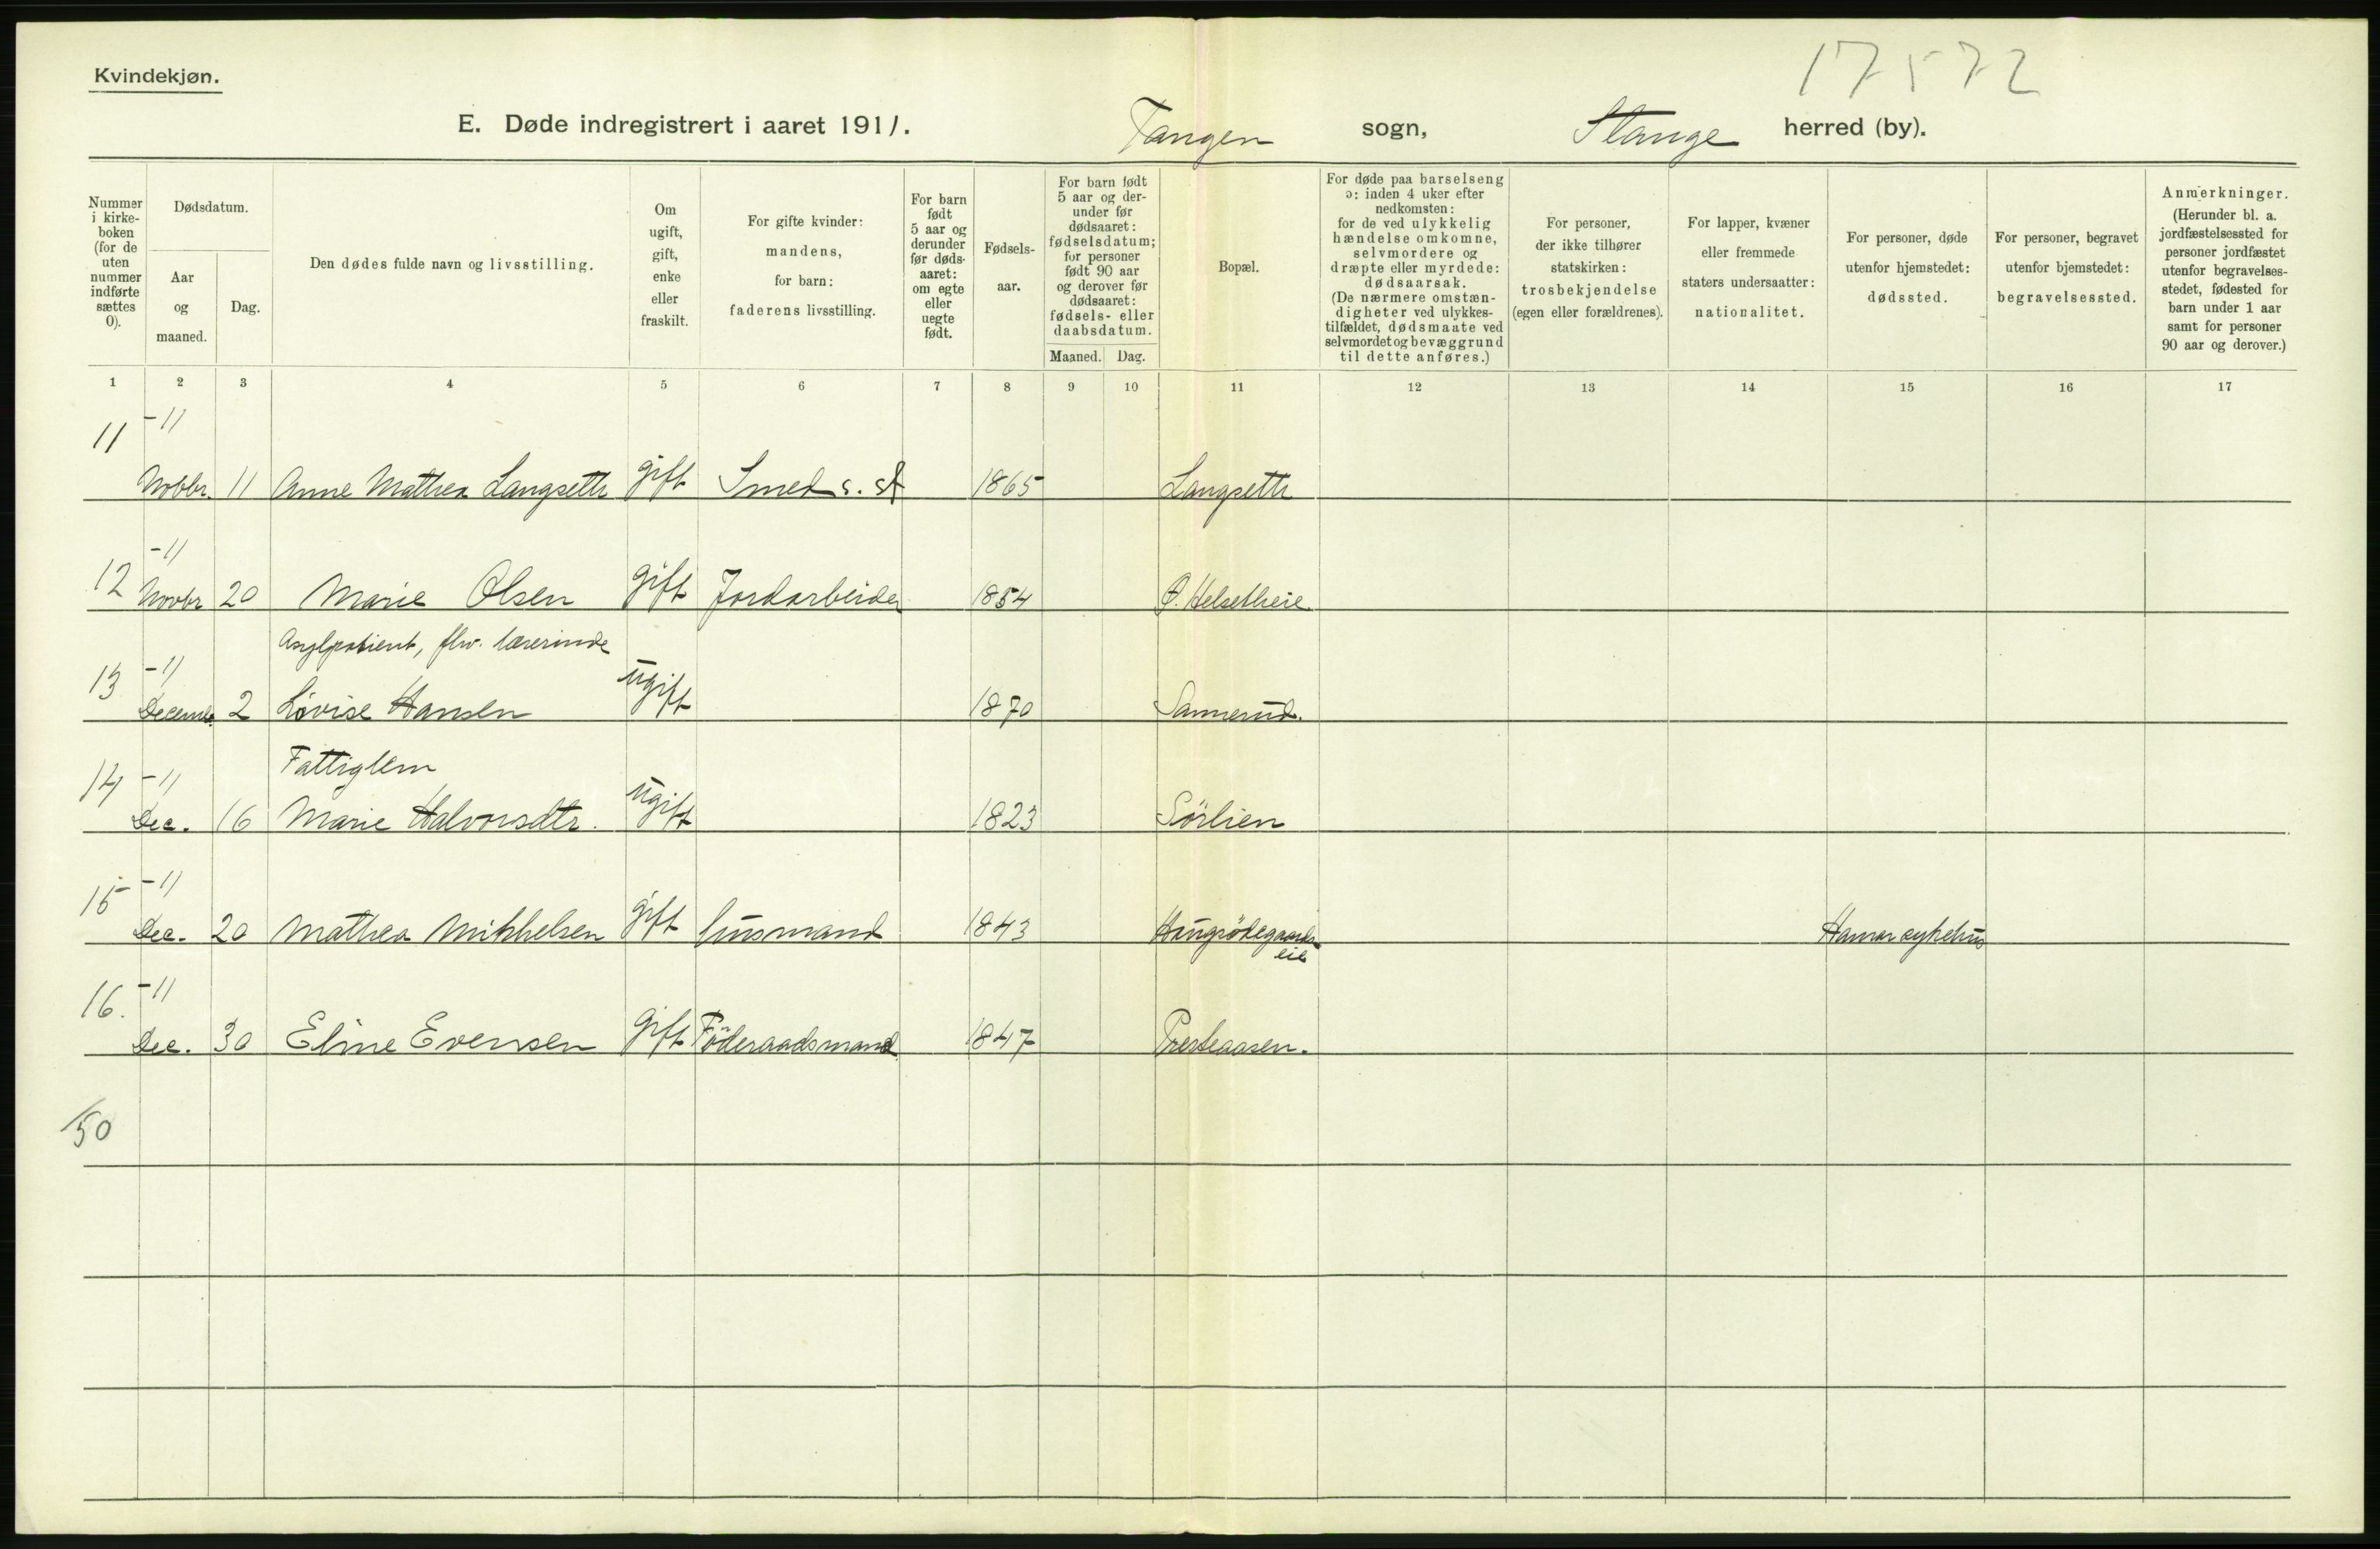 17572
Kvindekjøn.
E. Døde indregistrert i aaret 1911. Tangen sogn, Stange herred (by).
Nummer i kirke- boken (for de uten nummer indførte sættes 0).
Dødsdatum.
Aar og maaned.
Dag.
Den dødes fulde navn og livsstilling.
Om ugift, gift, enke eller fraskilt.
For gifte kvinder: mandens, for barn: faderens livsstilling.
For barn født 5 aar og derunder før døds- aaret: om egte eller uegte født.
Fødsels- aar.
For barn født 5 aar og der- under før dødsaaret: fødselsdatum; for personer født 90 aar og derover før dødsaaret: fødsels- eller daabsdatum.
Maaned. Dag.
Bopæl.
For døde paa barselseng ɔ: inden 4 uker efter nedkomsten: for de ved ulykkelig hændelse omkomne, selvmordere og dræpte eller myrdede: dødsaarsak. (De nærmere omstæn- digheter ved ulykkes- tilfældet, dødsmaate ved selvmordet og bevæggrund til dette anføres.)
For personer, der ikke tilhører statskirken: trosbekjendelse (egen eller forældrenes).
For lapper, kvæner eller fremmede staters undersaatter: nationalitet.
For personer, døde utenfor hjemstedet: dødssted.
For personer, begravet utenfor hjemstedet: begravelsessted.
Anmerkninger. (Herunder bl. a. jordfæstelsessted for personer jordfæstet utenfor begravelses- stedet, fødested for barn under 1 aar samt for personer 90 aar og derover.)
1 2 3 4 5 6 7 8 9 10 11 12 13 14 15 16 17
11 -11
Novbr. 11 Anne Mathea Langseth gift Smed s. st 1865 Langseth
-11
12 Novbr 20 Marie Olsen gift Jordarbeider 1854 Ø. Helsetheie
Asylpatient, fhv. lærerinde
13 -11
Decemb. 2 Lovise Hansen ugift 1870 Sannerud.
Fattiglem
14 -11
Dec. 16 Marie Halvorsdtr. ugift 1823 Sörlien
15 -11
Dec. 20 Mathea Mikkelsen gift husmand 1843 Haugsödegaards Hamar sykehus
eie
16. -11
Dec. 30 Eline Evensen gift Föderaadsmand 1847 Presteaasen.
150